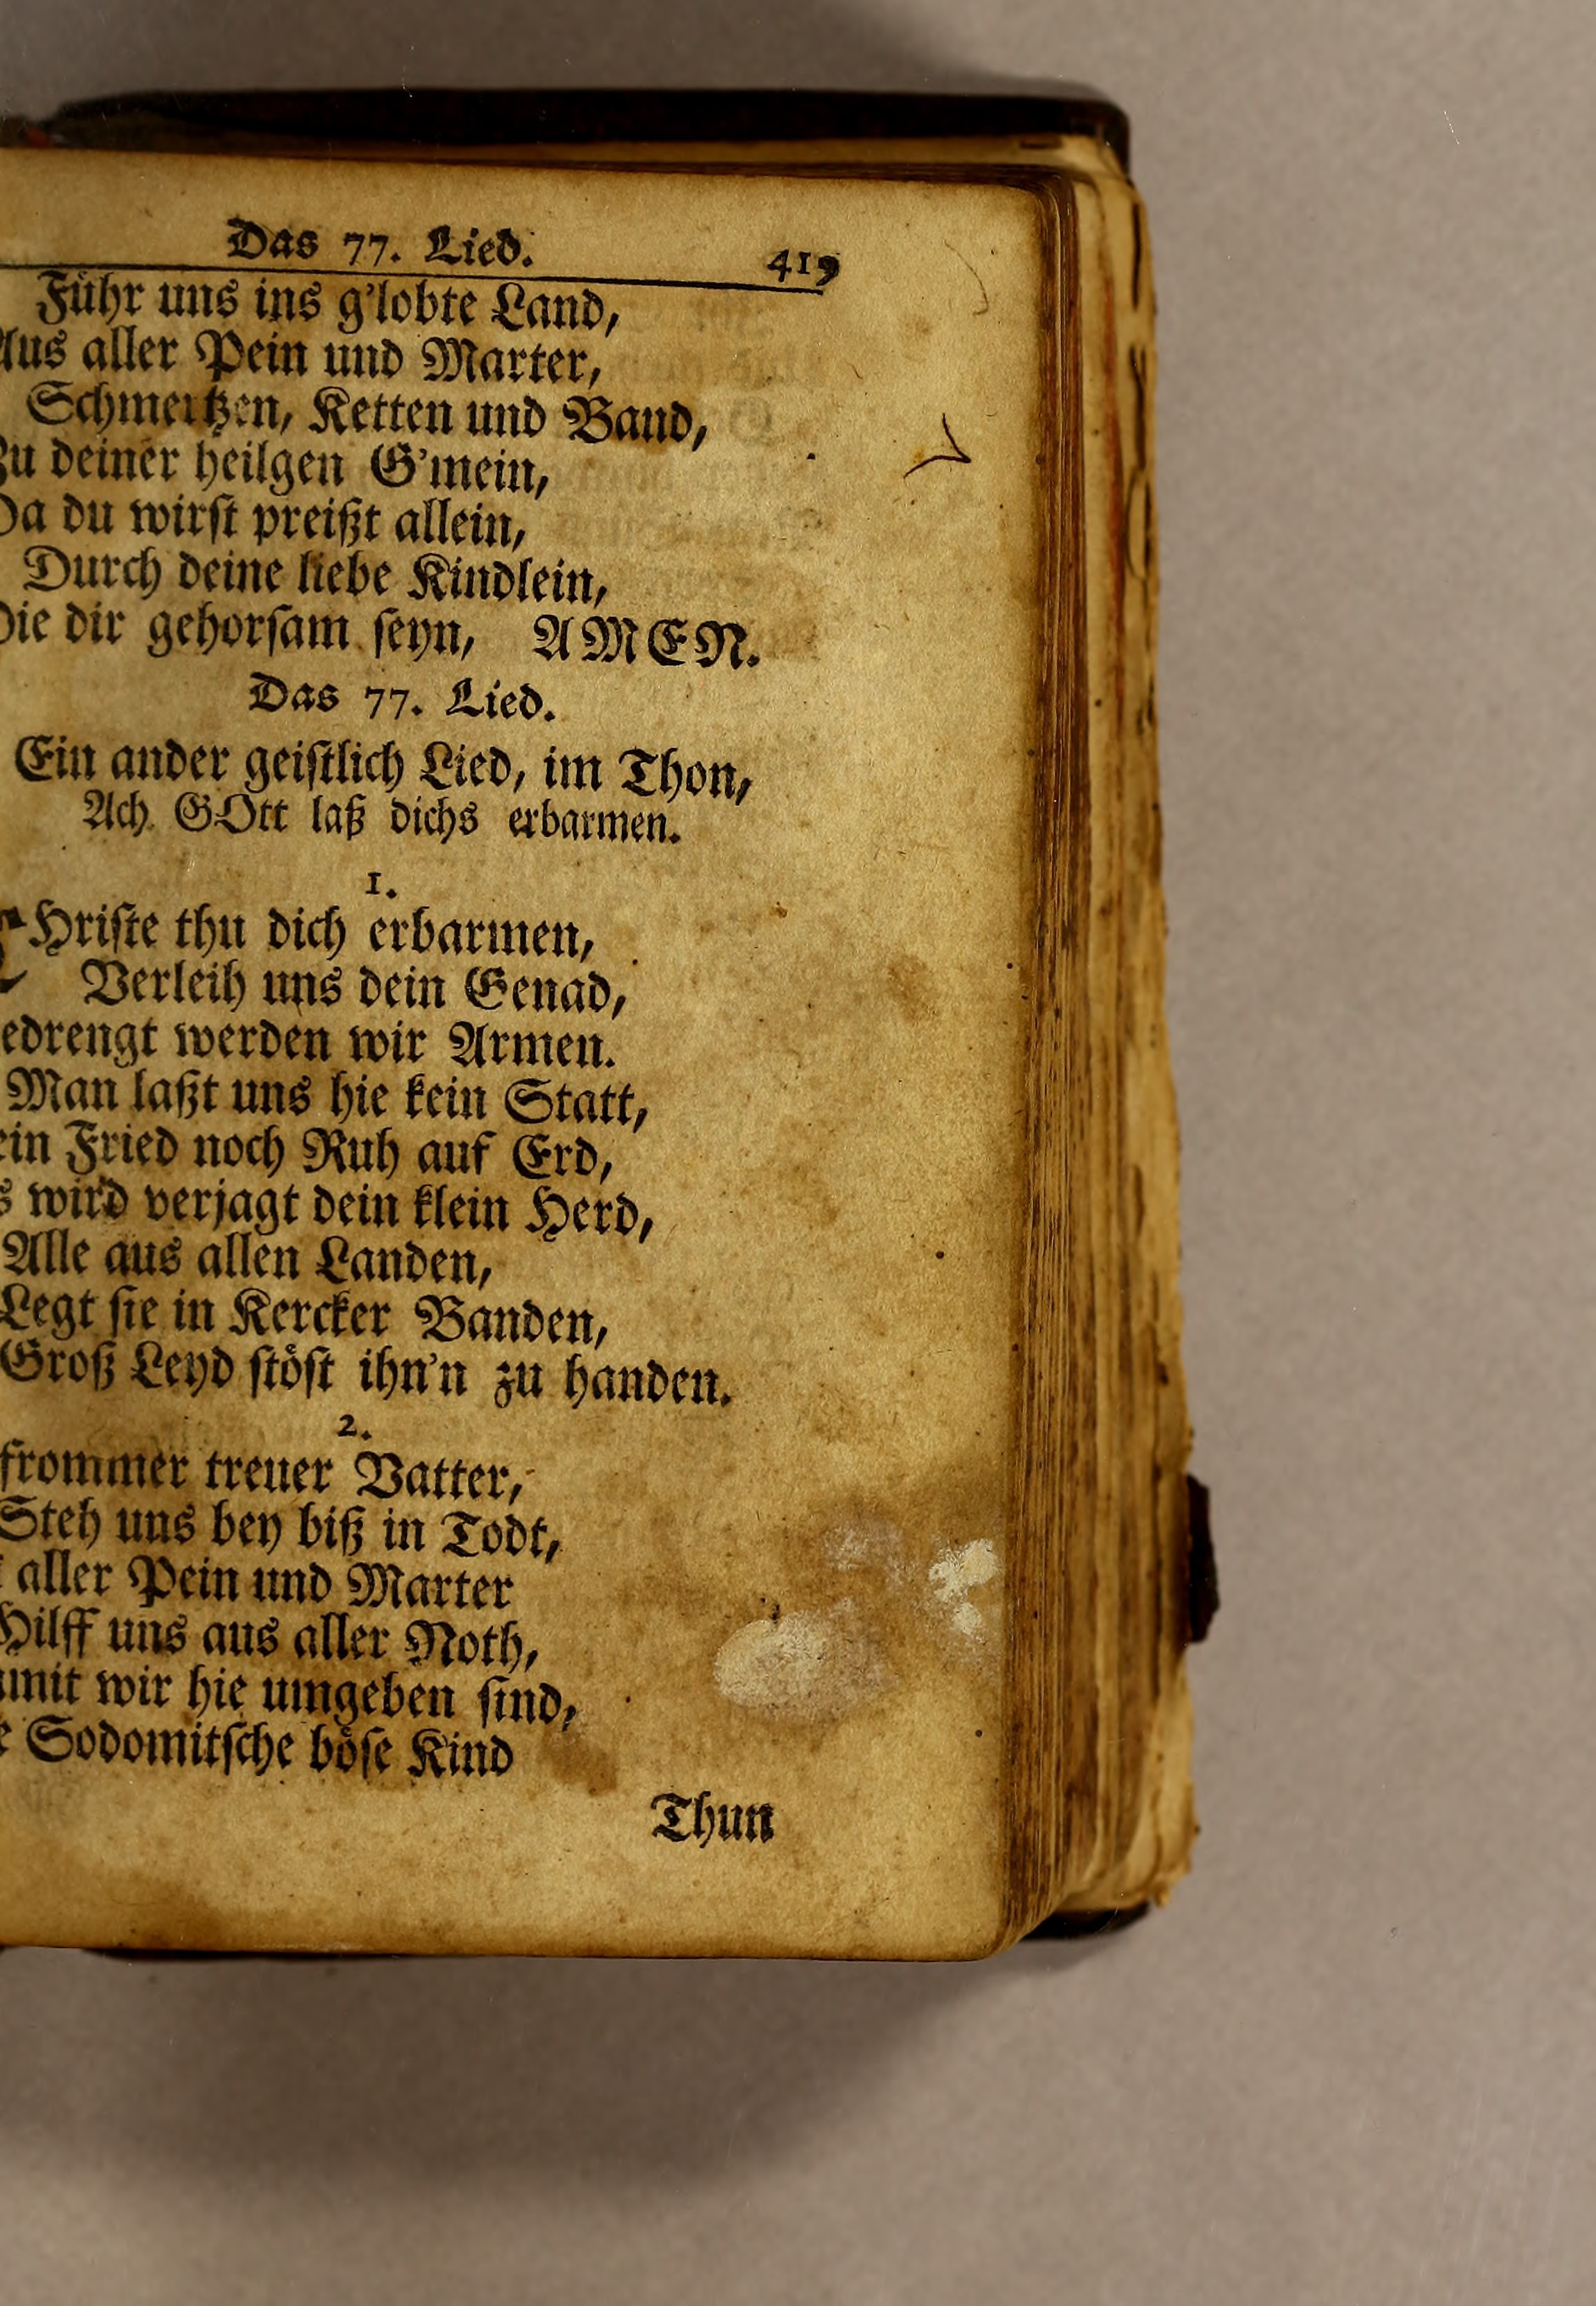 Das 77. Lied. 419
Führ uns ins g'lobte Land,
Aus aller Pein und Marter,
Schmertzen, Ketten und Band,
Zu deiner heilgen G'mein,
Da du wirst preißt allein,
Durch deine liebe Kindlein,
Die dir gehorsam seyn, AMEN.
Das 77. Lied.
Ein ander geistlich Lied, im Thon,
Ach GOtt laß dichs erbarmen.
1.
Hriste thu dich erbarmen,
Verleih uns dein Genad,
edrengt werden wir Armen.
Man laßt uns hie kein Statt,
ein Fried noch Ruh auf Erd,
s wird verjagt dein klein Herd,
Alle aus allen Landen,
Legt sie in Kercker Banden,
Groß Leyd stöst ihn'n zu handen.
2.
frommer treuer Vatter,
Steh uns bey biß in Todt,
aller Pein und Marter
Hilff uns aus aller Noth,
mit wir hie umgeben sind,
e Sodomitsche böse Kind
Thun